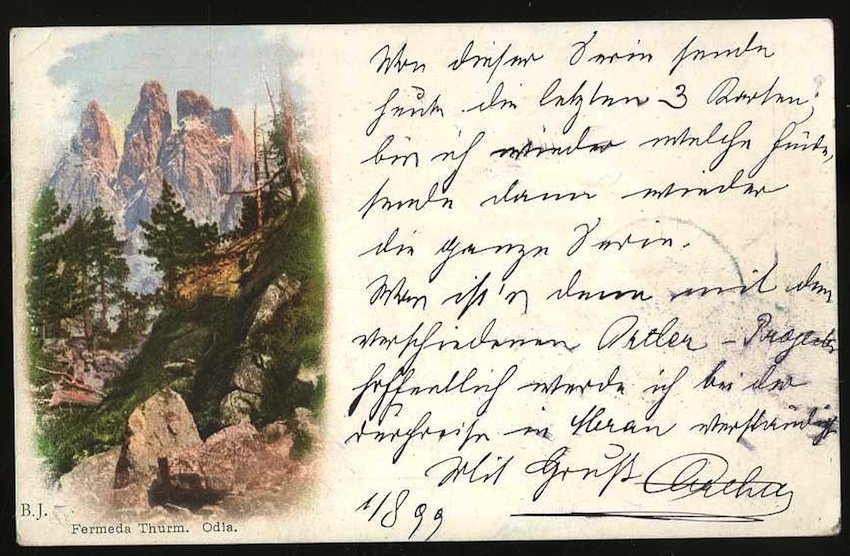 Von dieser Serie sende
heute die letzten 3 Karten;
bis ich wieder welche finde,
sende dann wieder
die ganze Serie.
Was ist's denn mit dem
verschiedenen Ortler - Project
hoffentlich werde ich bei der
Durchreise in Meran verständigt
Mit Gruß
1/8 99
B.J.
Fermeda Thurm. Odla.